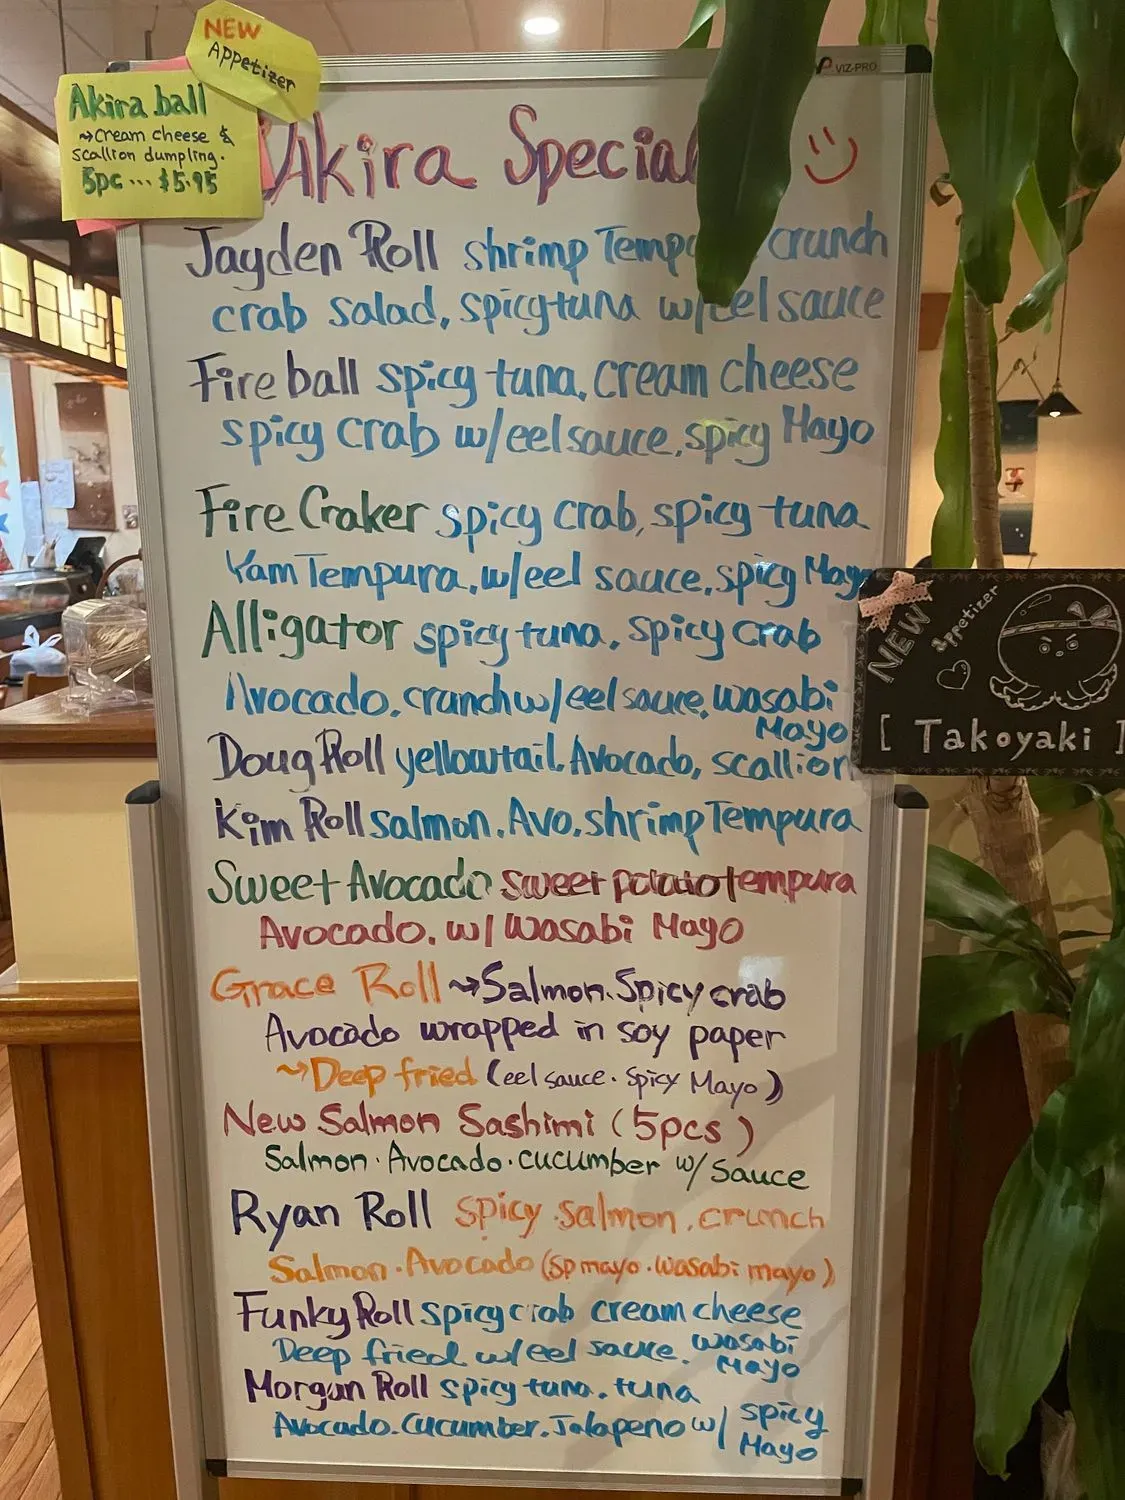 NEW
Appetizer
Akira ball
→Cream cheese &
scallion dumpling.
5pc ... $5.95
VIZ-PRO
Akira Special
Jayden Roll shrimp crunch
crab salad, spicy tuna w/eel sauce
Fire ball spicy tuna, cream cheese
spicy crab w/eel sauce, spicy Mayo
Fire Craker spicy crab, spicy tuna
Yam Tempura, w/eel sauce, spicy Mayo
Alligator spicy tuna, spicy crab
Avocado, crunch w/eel sauce, wasabi
Mayo
Doug Roll yellowtail, Avocado, scallion
Kim Roll salmon, Avo, shrimp Tempura
Sweet Avocado sweet potato tempura
Avocado, w/ Wasabi Mayo
Grace Roll → Salmon, Spicy crab
Avocado wrapped in soy paper
→ Deep fried (eel sauce · Spicy Mayo)
New Salmon Sashimi (5pcs)
Salmon · Avocado · cucumber w/ Sauce
Ryan Roll Spicy salmon, crunch
Salmon · Avocado (Sp mayo · wasabi mayo)
Funky Roll spicy crab cream cheese
Deep fried w/eel sauce, wasabi
Mayo
Morgan Roll spicy tuna, tuna
Avocado, Cucumber, Jalapeno w/ spicy
Mayo
NEW
appetizer
[ Takoyaki ]